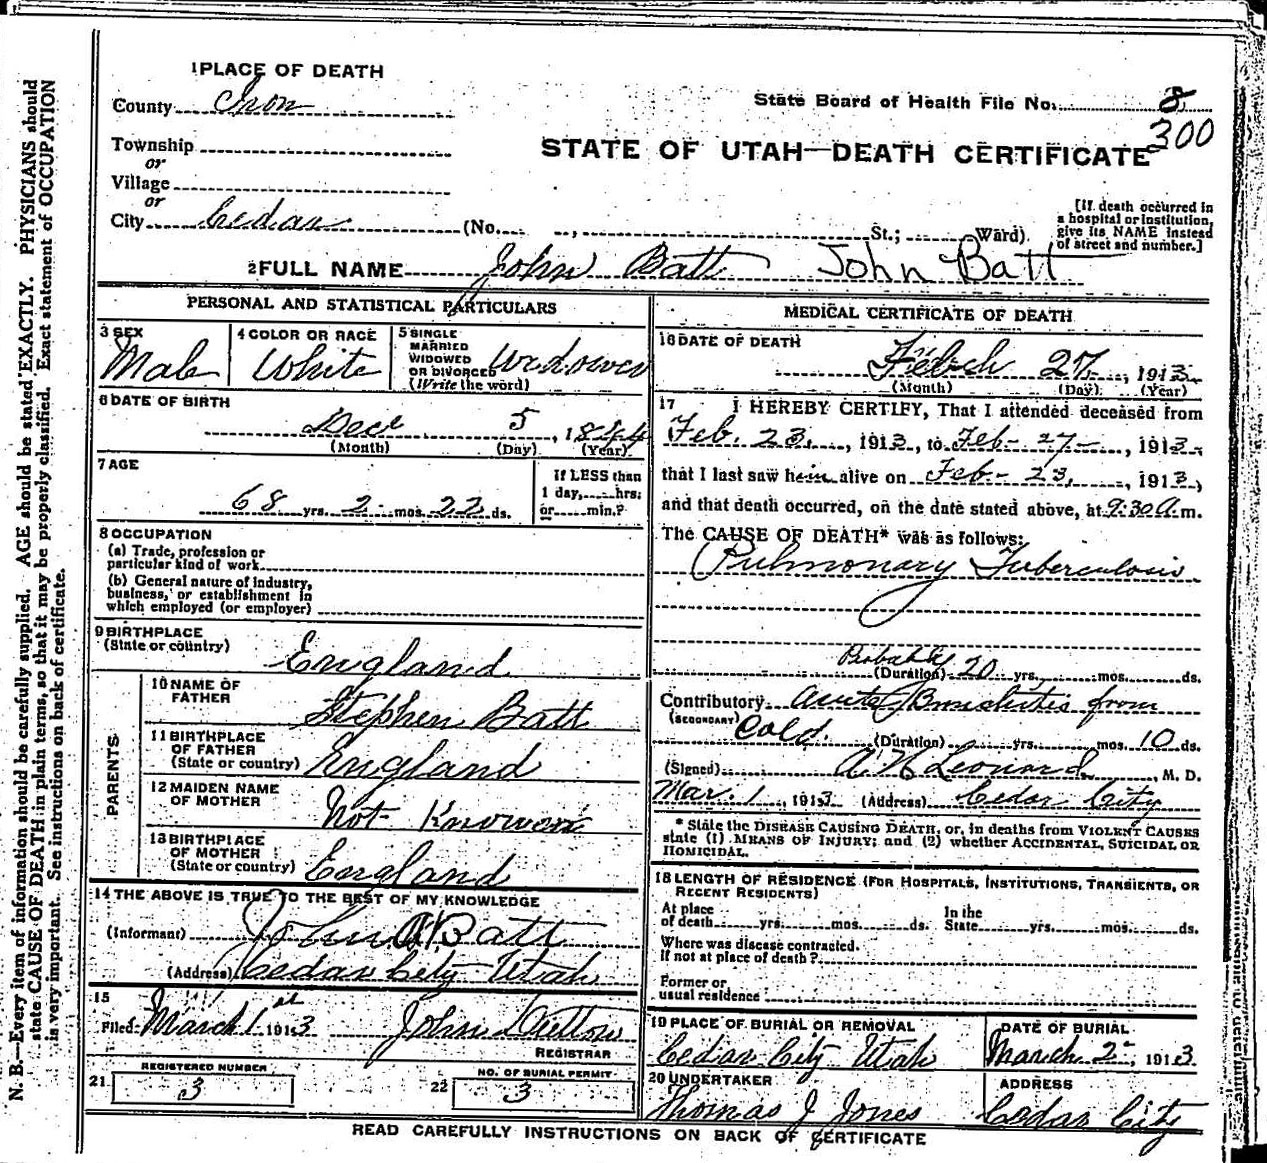 1 PLACE OF DEATH
County Iron
State Board of Health File No. 8
300
Township
or
Village
or
City Cedar (No. St.; Ward)
STATE OF UTAH—DEATH CERTIFICATE
[If death occurred in
a hospital or institution,
give its NAME instead
of street and number.]
2 FULL NAME John Batt John Batt
PERSONAL AND STATISTICAL PARTICULARS
3 SEX
Male
4 COLOR OR RACE
White
5 SINGLE
MARRIED
WIDOWED
OR DIVORCED
(Write the word)
Widower
6 DATE OF BIRTH
Dec 5, 1844
(Month) (Day) (Year)
7 AGE
68 yrs. 2 mos. 22 ds.
If LESS than
1 day, hrs.
or min.?
8 OCCUPATION
(a) Trade, profession or
particular kind of work
(b) General nature of industry,
business, or establishment in
which employed (or employer)
9 BIRTHPLACE
(State or country)
England
PARENTS
10 NAME OF
FATHER
Stephen Batt
11 BIRTHPLACE
OF FATHER
(State or country)
England
12 MAIDEN NAME
OF MOTHER
Not Knowen
13 BIRTHPLACE
OF MOTHER
(State or country)
England
14 THE ABOVE IS TRUE TO THE BEST OF MY KNOWLEDGE
(Informant) John Batt
(Address) Cedar City Utah
15
Filed March 1st 1913
REGISTRAR
REGISTERED NUMBER
21 3
NO. OF BURIAL PERMIT
22 3
MEDICAL CERTIFICATE OF DEATH
16 DATE OF DEATH
27, 1913
(Month) (Day) (Year)
17 I HEREBY CERTIFY, That I attended deceased from
Feb. 23, 1913, to Feb- 27-, 1913,
that I last saw him alive on Feb- 23, 1913,
and that death occurred, on the date stated above, at 9:30 A.m.
The CAUSE OF DEATH* was as follows:
Pulmonary Tuberculosis
Probably
(Duration) 20 yrs. mos. ds.
Contributory Acute Bronchitis from
(SECONDARY) Cold. (Duration) yrs. mos. 10 ds.
(Signed) A N Leonard, M. D.
Mar. 1, 1913 (Address) Cedar City
* State the DISEASE CAUSING DEATH, or, in deaths from VIOLENT CAUSES
state (1) MEANS OF INJURY; and (2) whether ACCIDENTAL, SUICIDAL OR
HOMICIDAL.
18 LENGTH OF RESIDENCE (FOR HOSPITALS, INSTITUTIONS, TRANSIENTS, OR
RECENT RESIDENTS)
At place
of death yrs. mos. ds.
In the
State yrs. mos. ds.
Where was disease contracted.
If not at place of death?
Former or
usual residence
19 PLACE OF BURIAL OR REMOVAL
Cedar City Utah
DATE OF BURIAL
March 2, 1913
20 UNDERTAKER
Thomas J Jones
ADDRESS
Cedar City
READ CAREFULLY INSTRUCTIONS ON BACK OF CERTIFICATE
N. B.—Every item of information should be carefully supplied. AGE should be stated EXACTLY. PHYSICIANS should
state CAUSE OF DEATH in plain terms, so that it may be properly classified. Exact statement of OCCUPATION
is very important. See instructions on back of certificate.